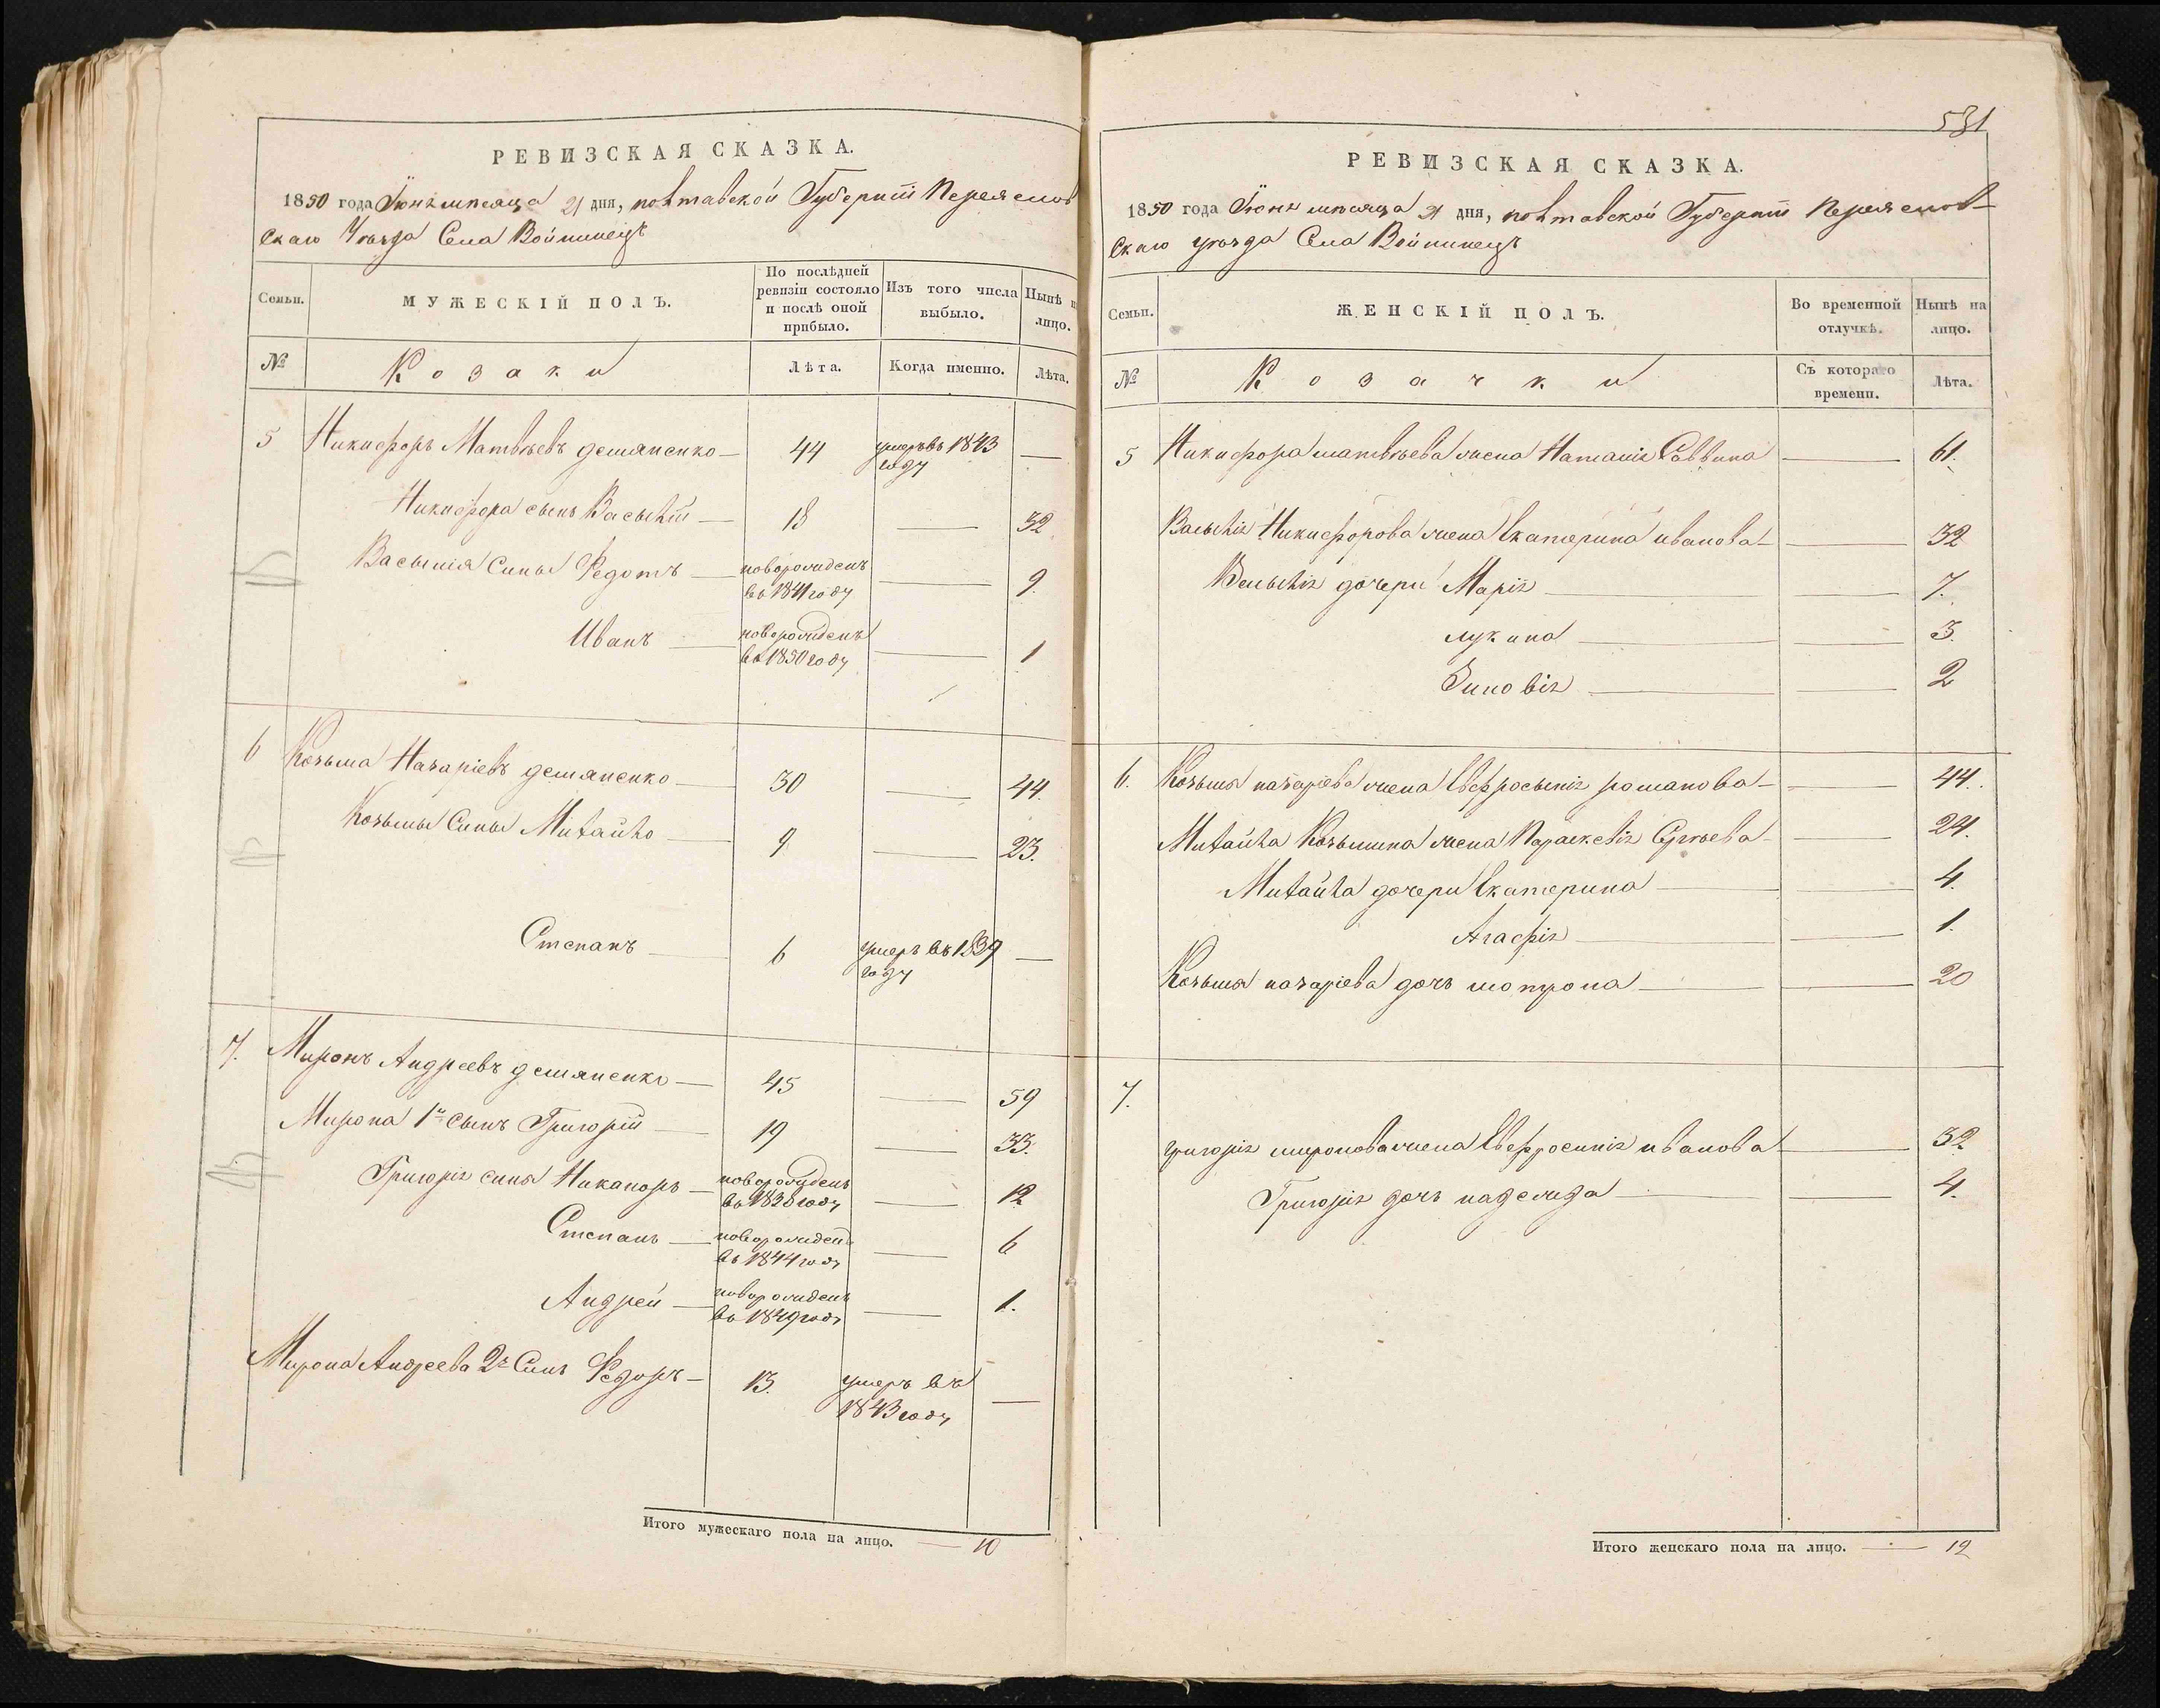 РЕВИЗСКАЯ СКАЗКА.
1850 года Іюня мѣсяца 21 дня, полтавской Губерніи Переяслов
скаго Уѣзда Села Войтинецъ
Семьи. МУЖЕСКІЙ ПОЛЪ. По послѣдней ревизіи состояло и послѣ оной прибыло. Изъ того числа выбыло. Нынѣ н лицо.
№ Козаки Лѣта. Когда именно. Лѣта.
5 Никифоръ Матвѣевъ демяненко — 44 умеръ въ 1843 году —
Никифора сынъ Василій — 18 — 32
Василія Сины Федотъ — новорожденъ въ 1841 году — 9.
Иванъ — новорожденъ въ 1850 году — 1
6 Козьма Назаріевъ демяненко — 30 — 44.
Козьмы Сины Михайло — 9. — 23.
Степанъ — 6 умеръ въ 1839 году —
7. Миронъ Андреевъ демяненко — 45 — 59
Мирона 1й сынъ Григорій — 19 — 33.
Григорія сины Никаноръ — новорожденъ въ 1838 году — 12
Степанъ — новорожденъ въ 1844 году — 6
Андрей — новорожденъ въ 1849 году — 1.
Мирона Андреева 2й Синъ Федоръ — 13. умеръ въ 1843 году —
Итого мужескаго пола на лицо. — 10
531
РЕВИЗСКАЯ СКАЗКА.
1850 года Іюня мѣсяца 21 дня, полтавской Губерніи Переяслов-
скаго уѣзда Села Войтинецъ
Семьи. ЖЕНСКІЙ ПОЛЪ. Во временной отлучкѣ. Нынѣ на лицо.
№ Козачки Съ котораго времени. Лѣта.
5 Никифора матвѣева жена Наталія Саввина — 61.
Василія Никифорова жена Екатерина иванова — 32
Василія дочери Марія — 7.
лукина — 3.
Зиновія — 2
6. Козьмы назаріева жена Евфросынія романова — 44.
Михайла Козьмина жена Параскевія Сергѣева — 24.
Михайла дочери Екатерина — 4.
Агафія — 1.
Козьмы назаріева дочь мотрона — 20
7.
григорія миронова жена Евфросинія иванова — 32
Григорія дочь надежда — 4.
Итого женскаго пола на лицо. — 12